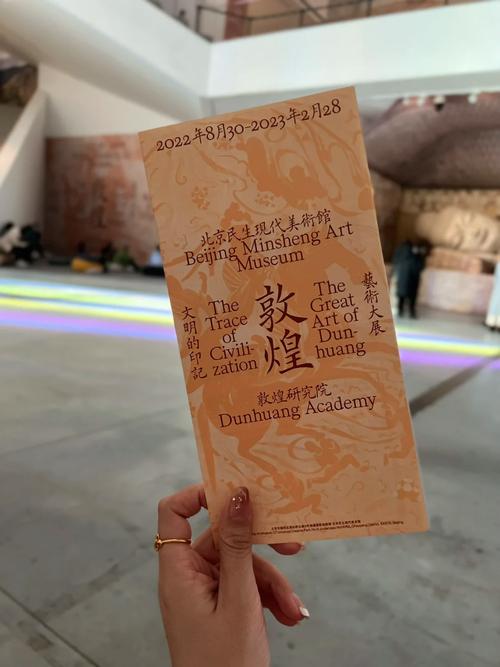 2022年8月30-2023年2月28
北京民生現代美術館
Beijing Minsheng Art
Museum
文明的印記
The
Trace
of
Civili-
zation
敦煌
The
Great
Art of
Dun-
huang
藝術大展
敦煌研究院
Dunhuang Academy